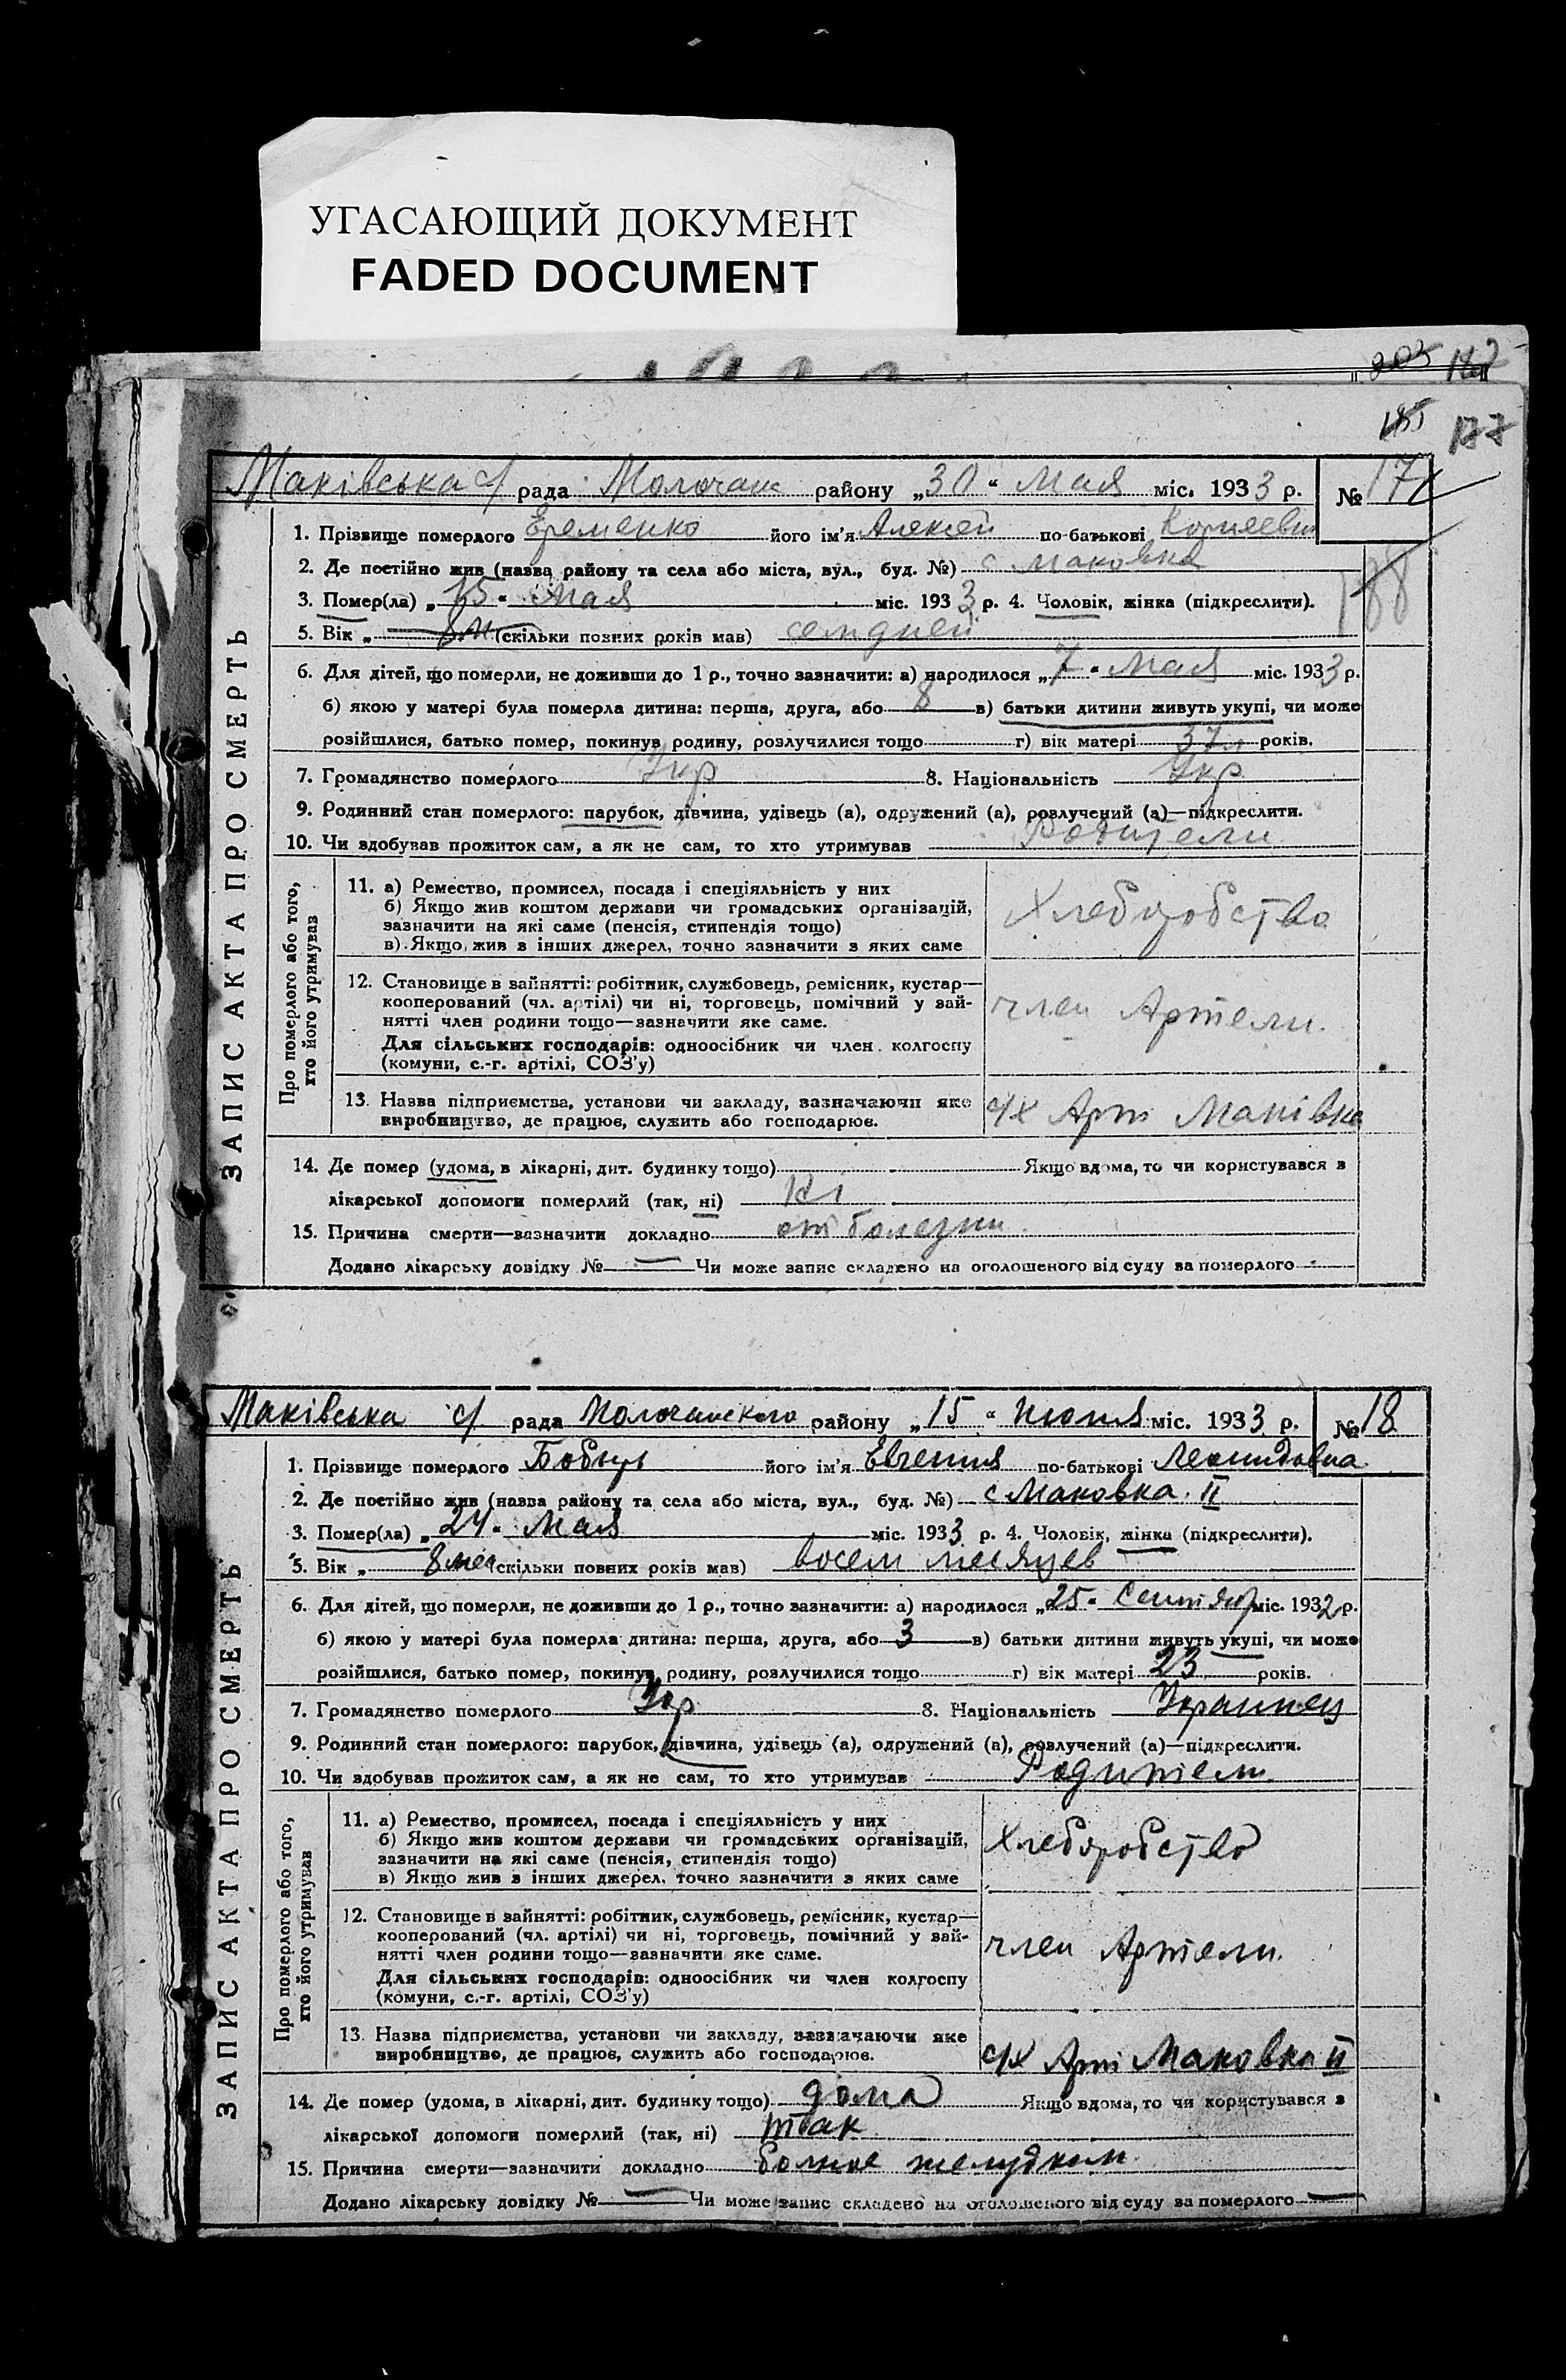 УГАСАЮЩИЙ ДОКУМЕНТ
FADED DOCUMENT
203 182
185 177
Маківська с/ рада Молочанс району „30“ Мая міс. 1933 р. № 17
1. Прізвище померлого Еременко його ім'я Алексей по-батькові Корнеевич
2. Де постійно жив (назва району та села або міста, вул., буд. №) с Маковка
188
3. Помер(ла) „15“ Мая міс. 1933 р. 4. Чоловік, жінка (підкреслити).
5. Вік „ 8 м (скільки повних років мав) сем дней
6. Для дітей, що померли, не доживши до 1 р., точно зазначити: а) народилося „7“ Мая міс. 1933 р.
б) якою у матері була померла дитина: перша, друга, або 8 в) батьки дитини живуть укупі, чи може
розійшлися, батько помер, покинув родину, розлучилися тощо г) вік матері 37 років.
7. Громадянство померлого Укр 8. Національність Укр
9. Родинний стан померлого: парубок, дівчина, удівець (а), одружений (а), розлучений (а)—підкреслити.
10. Чи здобував прожиток сам, а як не сам, то хто утримував Родители
ЗАПИС АКТА ПРО СМЕРТЬ
Про померлого або того,
хто його утримував
11. а) Ремество, промисел, посада і спеціяльність у них
б) Якщо жив коштом держави чи громадських організацій,
зазначити на які саме (пенсія, стипендія тощо)
в) Якщо жив з інших джерел, точно зазначити з яких саме
Хлебробство
12. Становище в зайнятті: робітник, службовець, ремісник, кустар—
кооперований (чл. артілі) чи ні, торговець, помічний у зай-
нятті член родини тощо—зазначити яке саме.
Для сільських господарів: одноосібник чи член колгоспу
(комуни, с.-г. артілі, СОЗ'у)
член Артели.
13. Назва підприємства, установи чи закладу, зазначаючи яке
виробництво, де працює, служить або господарює.
с/х Арт Маківка
14. Де помер (удома, в лікарні, дит. будинку тощо) Якщо вдома, то чи користувався з
лікарської допомоги померлий (так, ні)
15. Причина смерти—зазначити докладно от болезни
Додано лікарську довідку № — Чи може запис складено на оголошеного від суду за померлого
Маківська с/ рада Молочанского району „15“ Июня міс. 1933 р. № 18
1. Прізвище померлого його ім'я Евгения по-батькові Леонидовна
2. Де постійно жив (назва району та села або міста, вул., буд. №) с Маковка II
3. Помер(ла) „24“ Мая міс. 1933 р. 4. Чоловік, жінка (підкреслити).
5. Вік „ 8 мес (скільки повних років мав) восем месяцев
6. Для дітей, що померли, не доживши до 1 р., точно зазначити: а) народилося „25“ Сентябр міс. 1932 р.
б) якою у матері була померла дитина: перша, друга, або 3 в) батьки дитини живуть укупі, чи може
розійшлися, батько помер, покинув родину, розлучилися тощо г) вік матері 23 років.
7. Громадянство померлого Укр 8. Національність Украинец
9. Родинний стан померлого: парубок, дівчина, удівець (а), одружений (а), розлучений (а)—підкреслити.
10. Чи здобував прожиток сам, а як не сам, то хто утримував Родители
ЗАПИС АКТА ПРО СМЕРТЬ
Про померлого або того,
хто його утримував
11. а) Ремество, промисел, посада і спеціяльність у них
б) Якщо жив коштом держави чи громадських організацій,
зазначити на які саме (пенсія, стипендія тощо)
в) Якщо жив з інших джерел, точно зазначити з яких саме
Хлебробство
12. Становище в зайнятті: робітник, службовець, ремісник, кустар—
кооперований (чл. артілі) чи ні, торговець, помічний у зай-
нятті член родини тощо—зазначити яке саме.
Для сільських господарів: одноосібник чи член колгоспу
(комуни, с.-г. артілі, СОЗ'у)
член Артели.
13. Назва підприємства, установи чи закладу, зазначаючи яке
виробництво, де працює, служить або господарює.
с/х Арт Маковка II
14. Де помер (удома, в лікарні, дит. будинку тощо) дома Якщо вдома, то чи користувався з
лікарської допомоги померлий (так, ні) так
15. Причина смерти—зазначити докладно желудком
Додано лікарську довідку № — Чи може запис складено на оголошеного від суду за померлого —